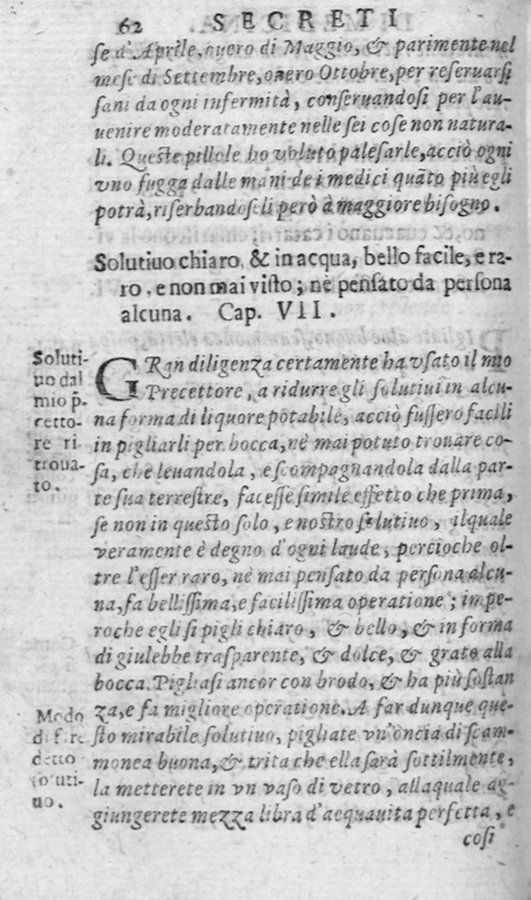 62 SECRETI
se d'Aprile, ouero di Maggio, & parimente nel
mese di Settembre, ouero Ottobre, per reseruarsi
sani da ogni infermità, conseruandosi per l'au-
uenire moderatamente nelle sei cose non natura-
li. Queste pillole ho voluto palesarle, acciò ogni
vno fugga dalle mani de i medici quãto più egli
potrà, riserbandoseli però à maggiore bisogno.
Solutiuo chiaro, & in acqua, bello facile, e ra-
ro, e non mai visto; nè pensato da persona
alcuna. Cap. VII.
Soluti-
uo dal
mio p̃-
cetto-
re ri-
troua-
to.
GRan diligenza certamente ha vsato il mio
Precettore, a ridurre gli solutiui in alcu-
na forma di liquore potabile, acciò fussero facili
in pigliarli per bocca, nè mai potuto trouare co-
sa, che leuandola, e scompagnandola dalla par-
te sua terrestre, facesse simile effetto che prima,
se non in questo solo, e nostro solutiuo, ilquale
veramente è degno d'ogni laude, percioche ol-
tre l'esser raro, nè mai pensato da persona alcu-
na, fa bellissima, e facilissima operatione; impe-
roche egli si pigli chiaro, & bello, & in forma
di giulebbe trasparente, & dolce, & grato alla
bocca. Pigliasi ancor con brodo, & ha più sostan
za, e fa migliore operatione. A far dunque que-
sto mirabile solutiuo, pigliate vn'oncia di scam-
monea buona, & trita che ella sarà sottilmente,
la metterete in vn vaso di vetro, allaquale ag-
giungerete mezza libra d'acquauita perfetta, e
Modo
di fare
detto
soluti-
uo.
cosi